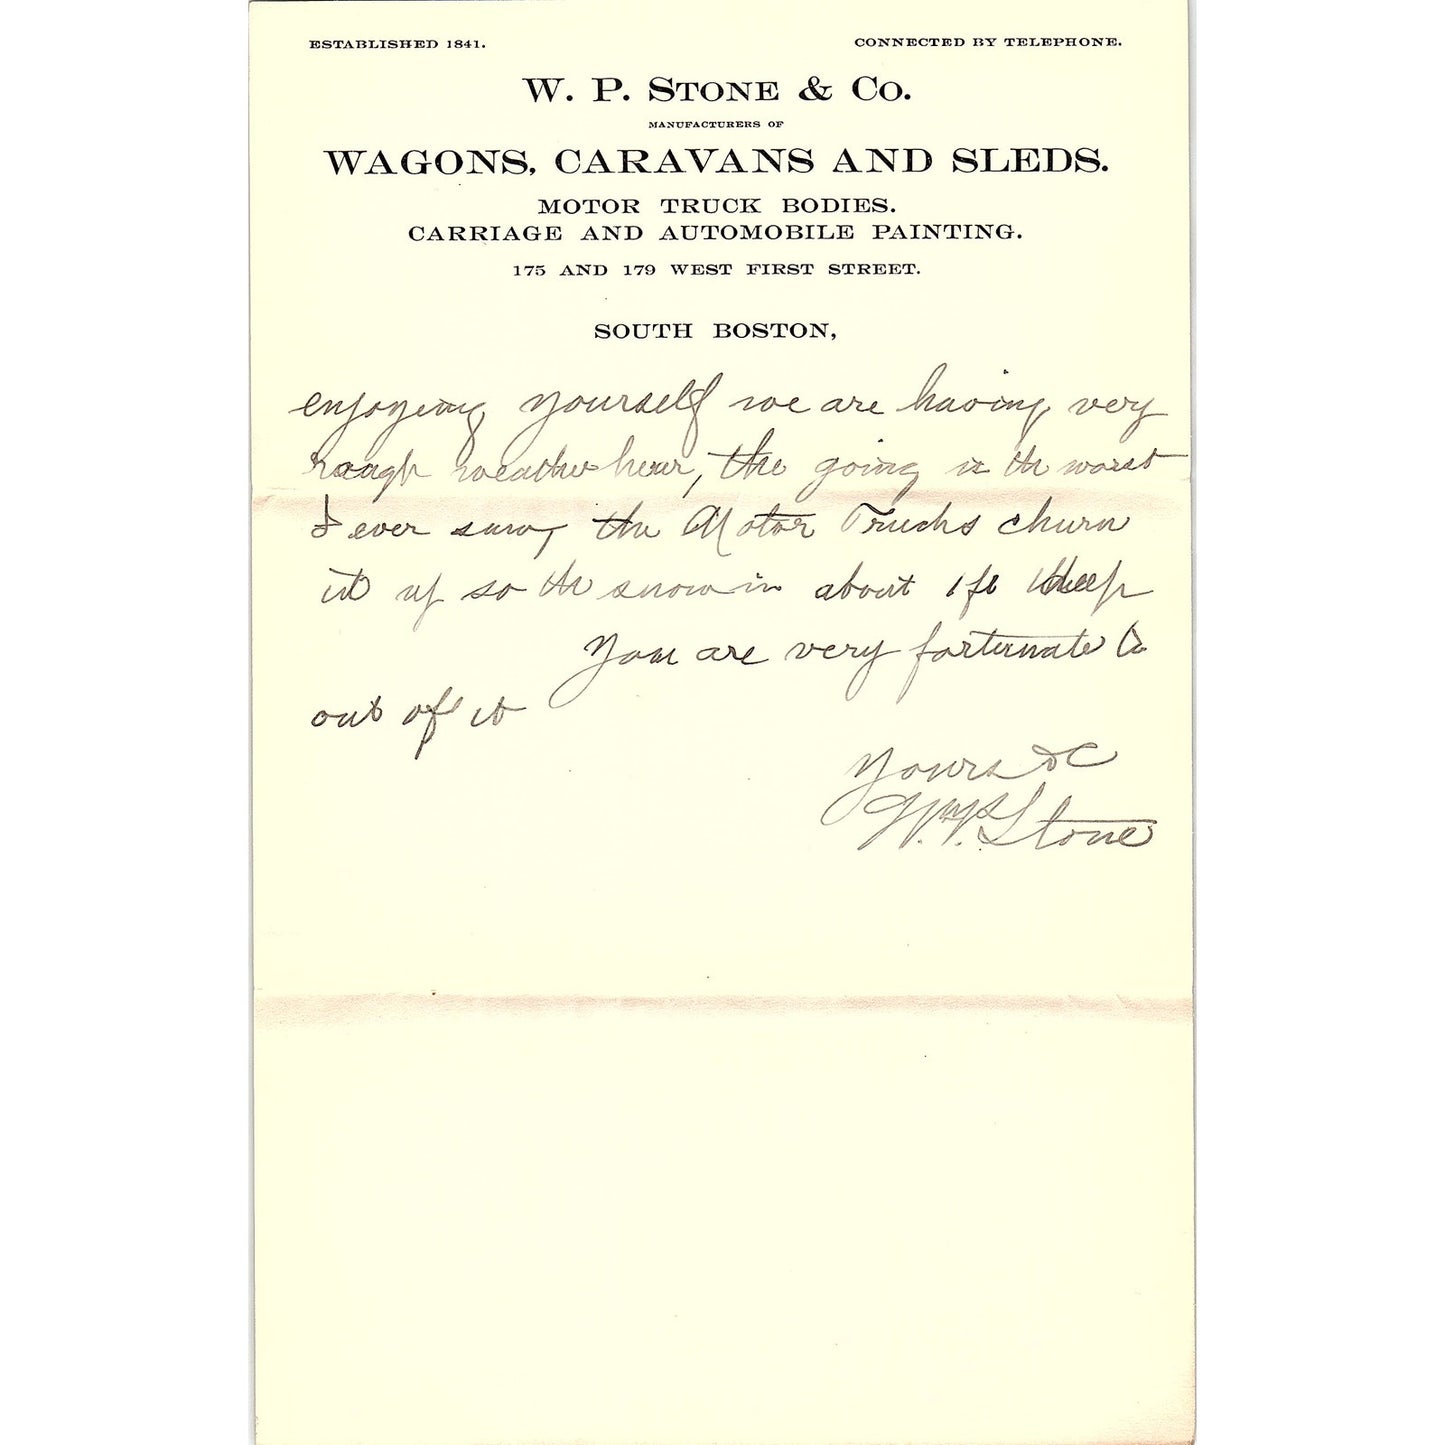 ESTABLISHED 1841.
CONNECTED BY TELEPHONE.
W. P. STONE & CO.
MANUFACTURERS OF
WAGONS, CARAVANS AND SLEDS.
MOTOR TRUCK BODIES.
CARRIAGE AND AUTOMOBILE PAINTING.
175 AND 179 WEST FIRST STREET.
SOUTH BOSTON,
enjoying yourself we are having very
rough weather hear, the going is the worst
I ever saw, the Motor Trucks churn
it up so the snow in about 1 ft deep
You are very fortunate to
out of it
Yours &C
W. P. Stone